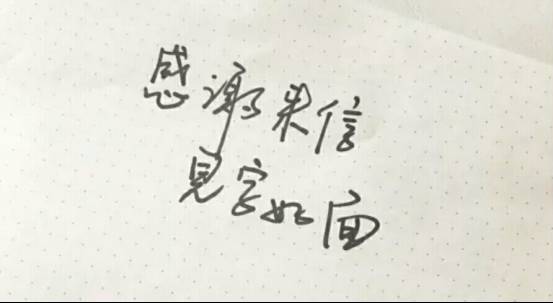 感谢来信
見字如面